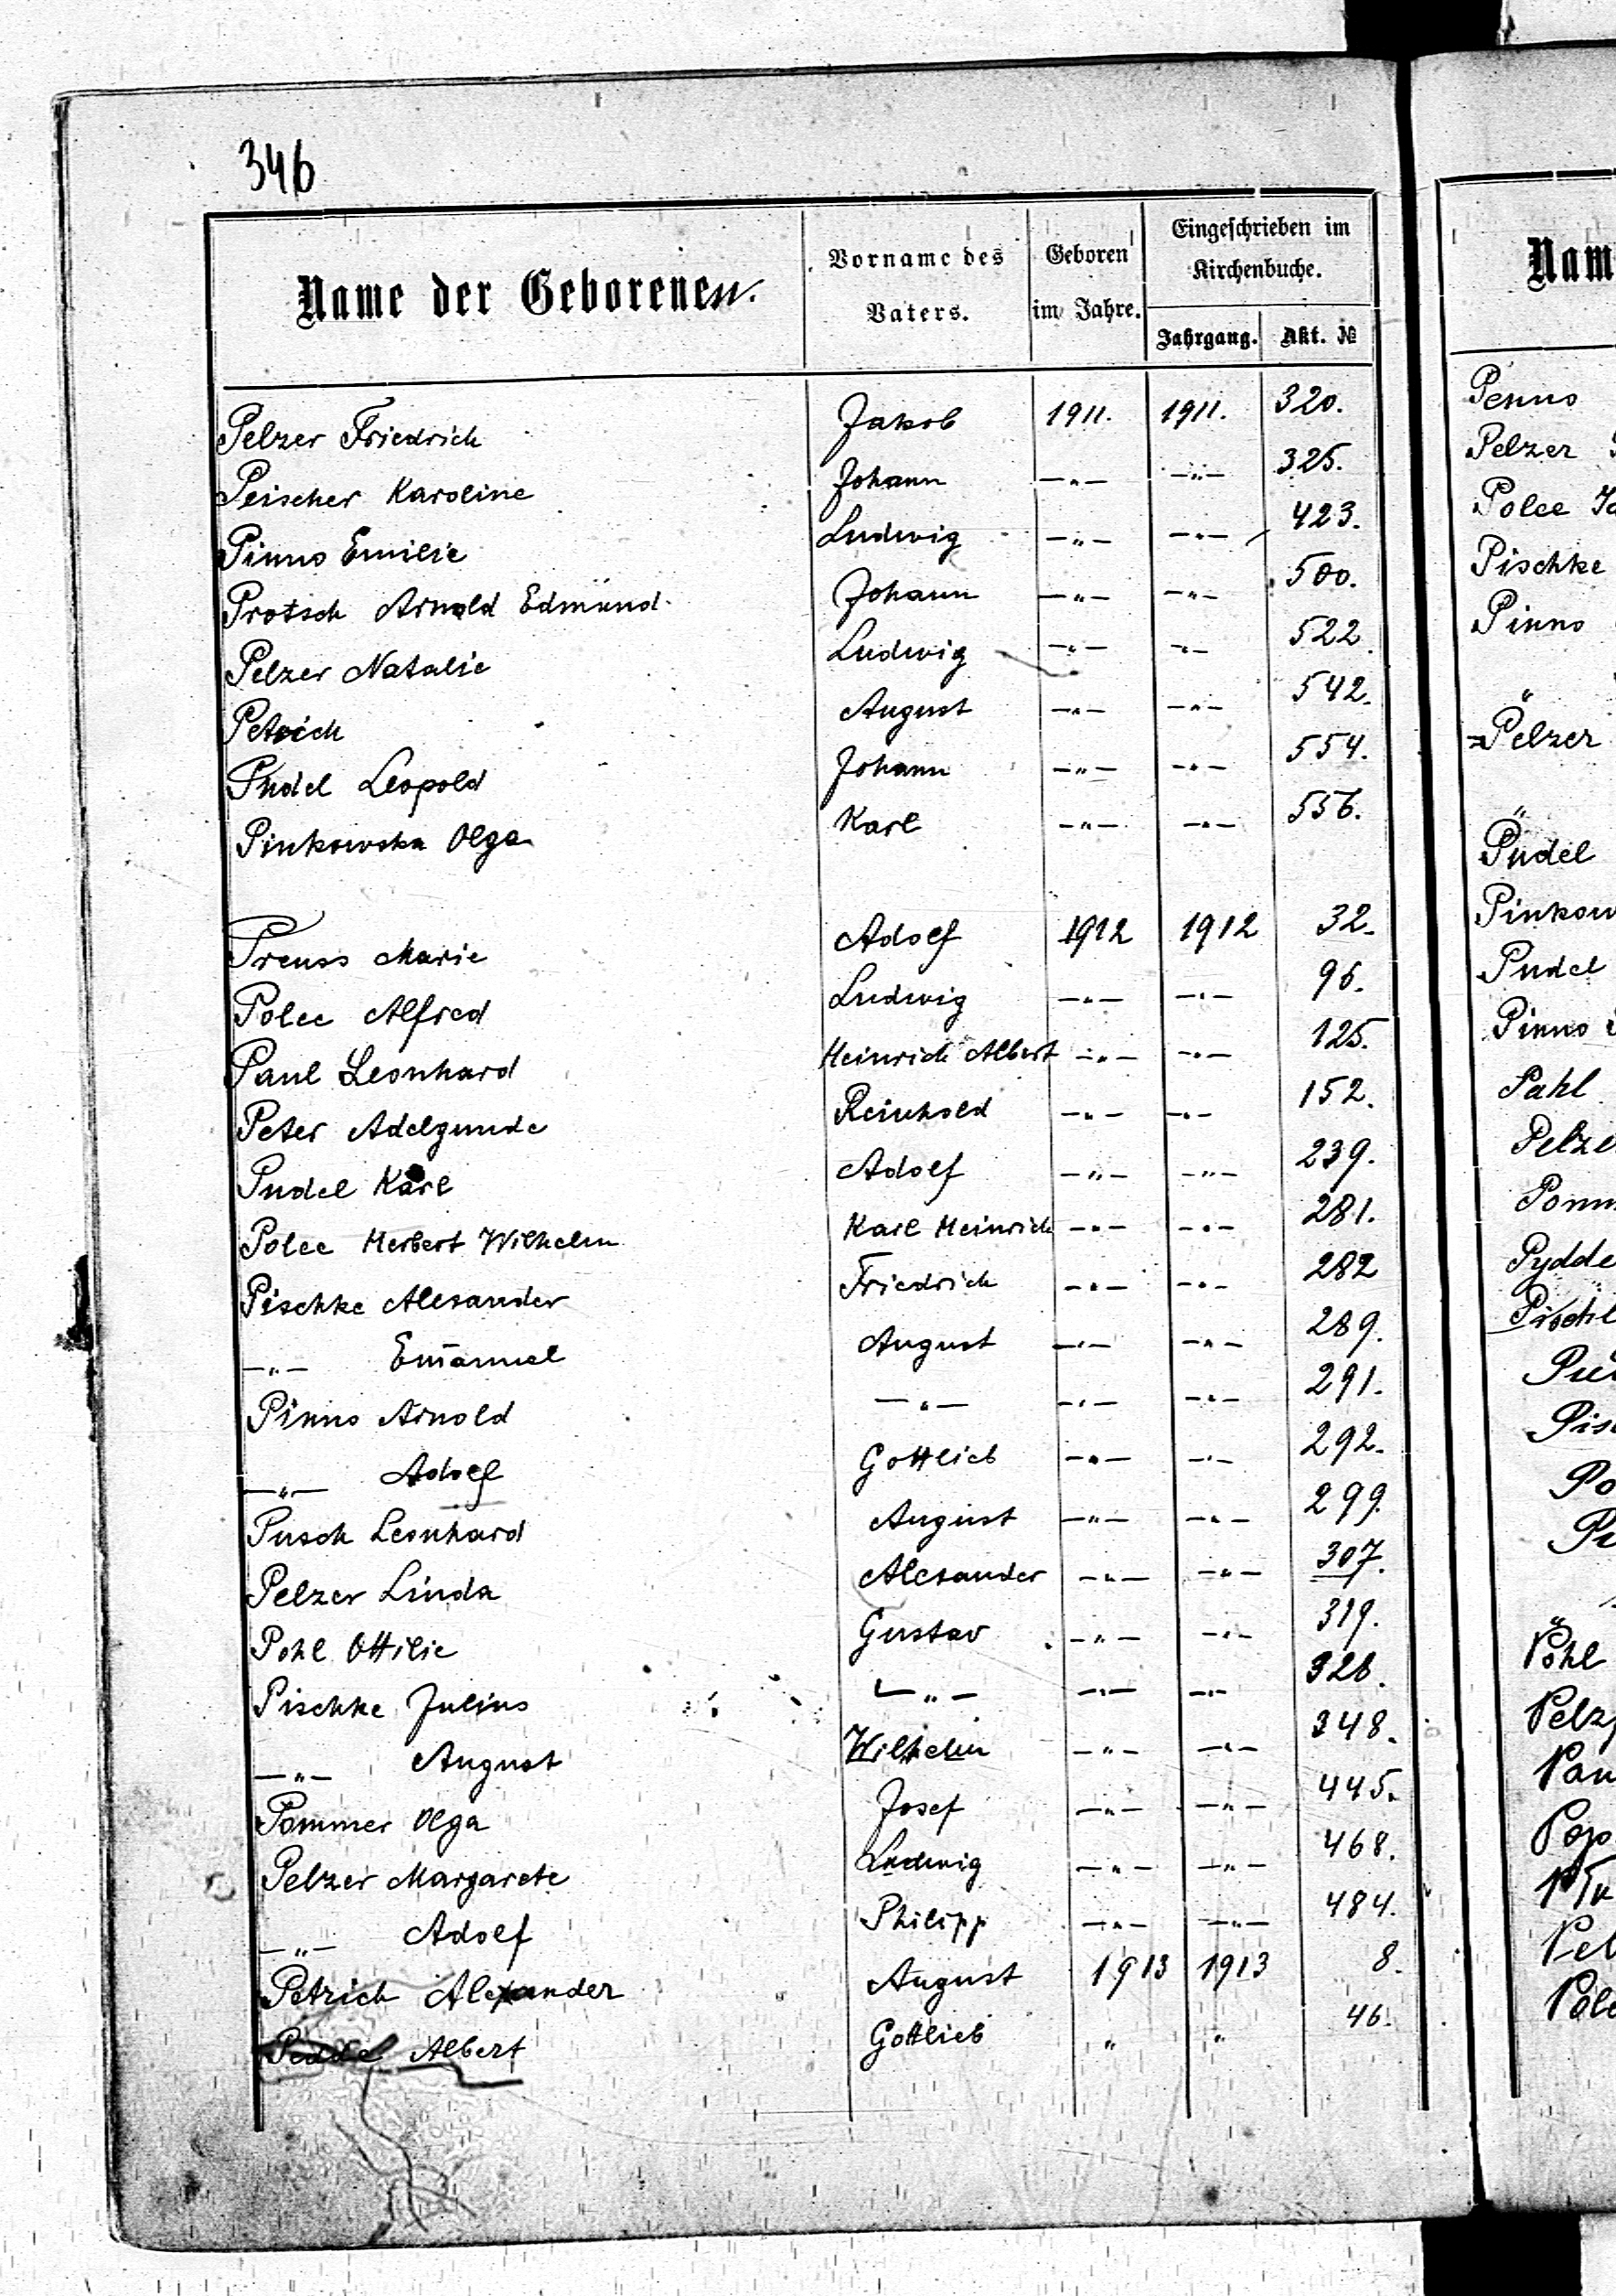 346
Name der Geborenen.
Vorname des Vaters.
Geboren im Jahre.
Eingeschrieben im Kirchenbuche.
Jahrgang. Akt. №
Pelzer Friedrich Jakob 1911. 1911. 320.
Peischer Karoline Johann —"— —"— 325.
Pinno Emilie Ludwig —"— —"— 423.
Protsch Arnold Edmund Johann —"— —"— 500.
Pelzer Natalie Ludwig —"— —"— 522.
Petrich August —"— —"— 542.
Pudel Leopold Johann —"— —"— 554.
Pinkowska Olga Karl —"— —"— 556.
Preuss Marie Adolf 1912 1912 32.
Polee Alfred Ludwig —"— —"— 96.
Paul Leonhard Heinrich Albert —"— —"— 125.
Peter Adelgunde Reinhold —"— —"— 152.
Pudel Karl Adolf —"— —"— 239.
Polee Herbert Wilhelm Karl Heinrich —"— —"— 281.
Pischke Alexander Friedrich —"— —"— 282
—"— Emanuel August —"— —"— 289.
Pinno Arnold —"— —"— —"— 291.
—"— Adolf Gottlieb —"— —"— 292.
Pusch Leonhard August —"— —"— 299.
Pelzer Linda Alexander —"— —"— 307.
Pohl Ottilie Gustav —"— —"— 319.
Pischke Julius —"— —"— —"— 328.
—"— August Wilhelm —"— —"— 348.
Pommer Olga Josef —"— —"— 445.
Pelzer Margarete Ludwig —"— —"— 468.
—"— Adolf Philipp —"— —"— 484.
Petrich Alexander August 1913 1913 8.
Albert Gottlieb " " 46.
Nam
Penno
Pelzer
Polee
Pischke
Pinno
"
Pelzer
"
Pudel
Pinkow
Pudel
Pinno
Pahl
Pelze
Pomm
Pydde
Pischk
Pis
Po
"
Pohl
Pelz
Pau
Pop
Pel
Pole